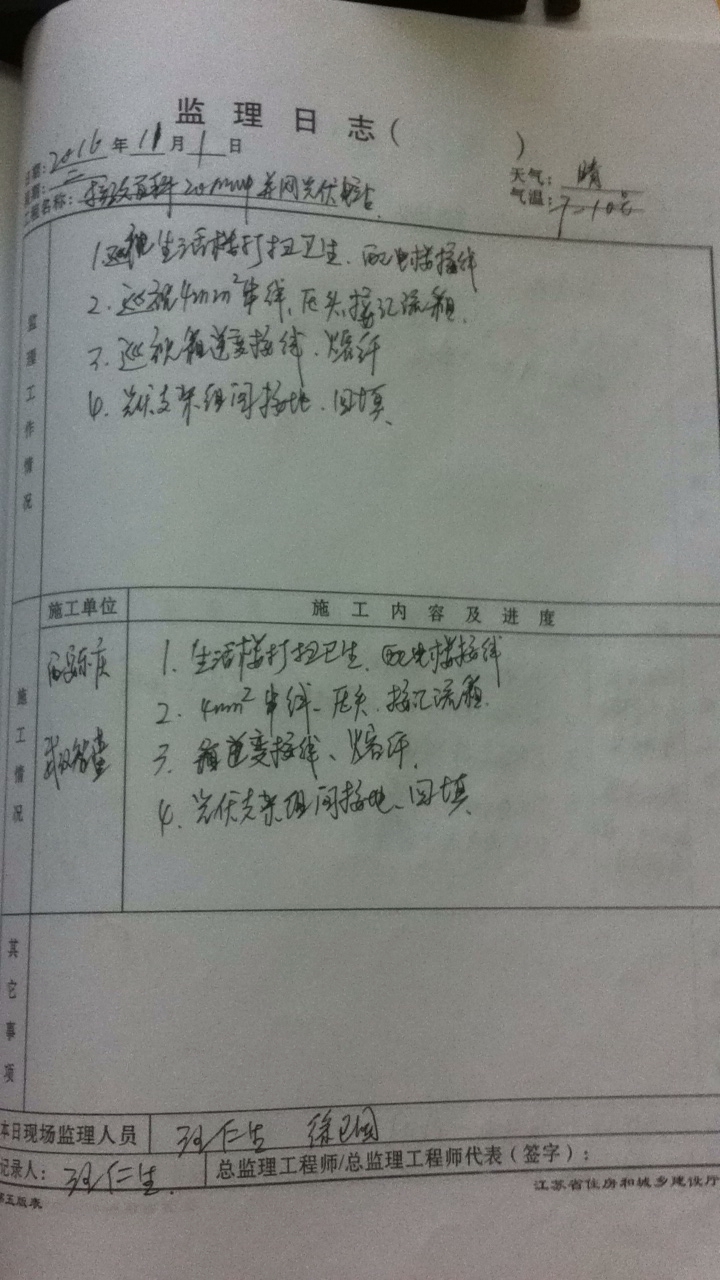 监理日志( )
日期:2016年11月1日
星期:二
天气:晴
工程名称: 20MWp并网光伏电站
气温:7-10℃
监理工作情况
1.巡视生活楼打扫卫生、配电楼接线
2.巡视4mm²串线、压头、接汇流箱
3.巡视箱逆变接线、熔纤
4.光伏支架组间接地、回填
施工单位 施工内容及进度
施工情况
1.生活楼打扫卫生、配电楼接线
2.4mm²串线、压头、接汇流箱
3.箱逆变接线、熔纤
4.光伏支架组间接地、回填
其它事项
本日现场监理人员 汪仁生 徐卫国
记录人:汪仁生 总监理工程师/总监理工程师代表(签字):
第五版表 江苏省住房和城乡建设厅